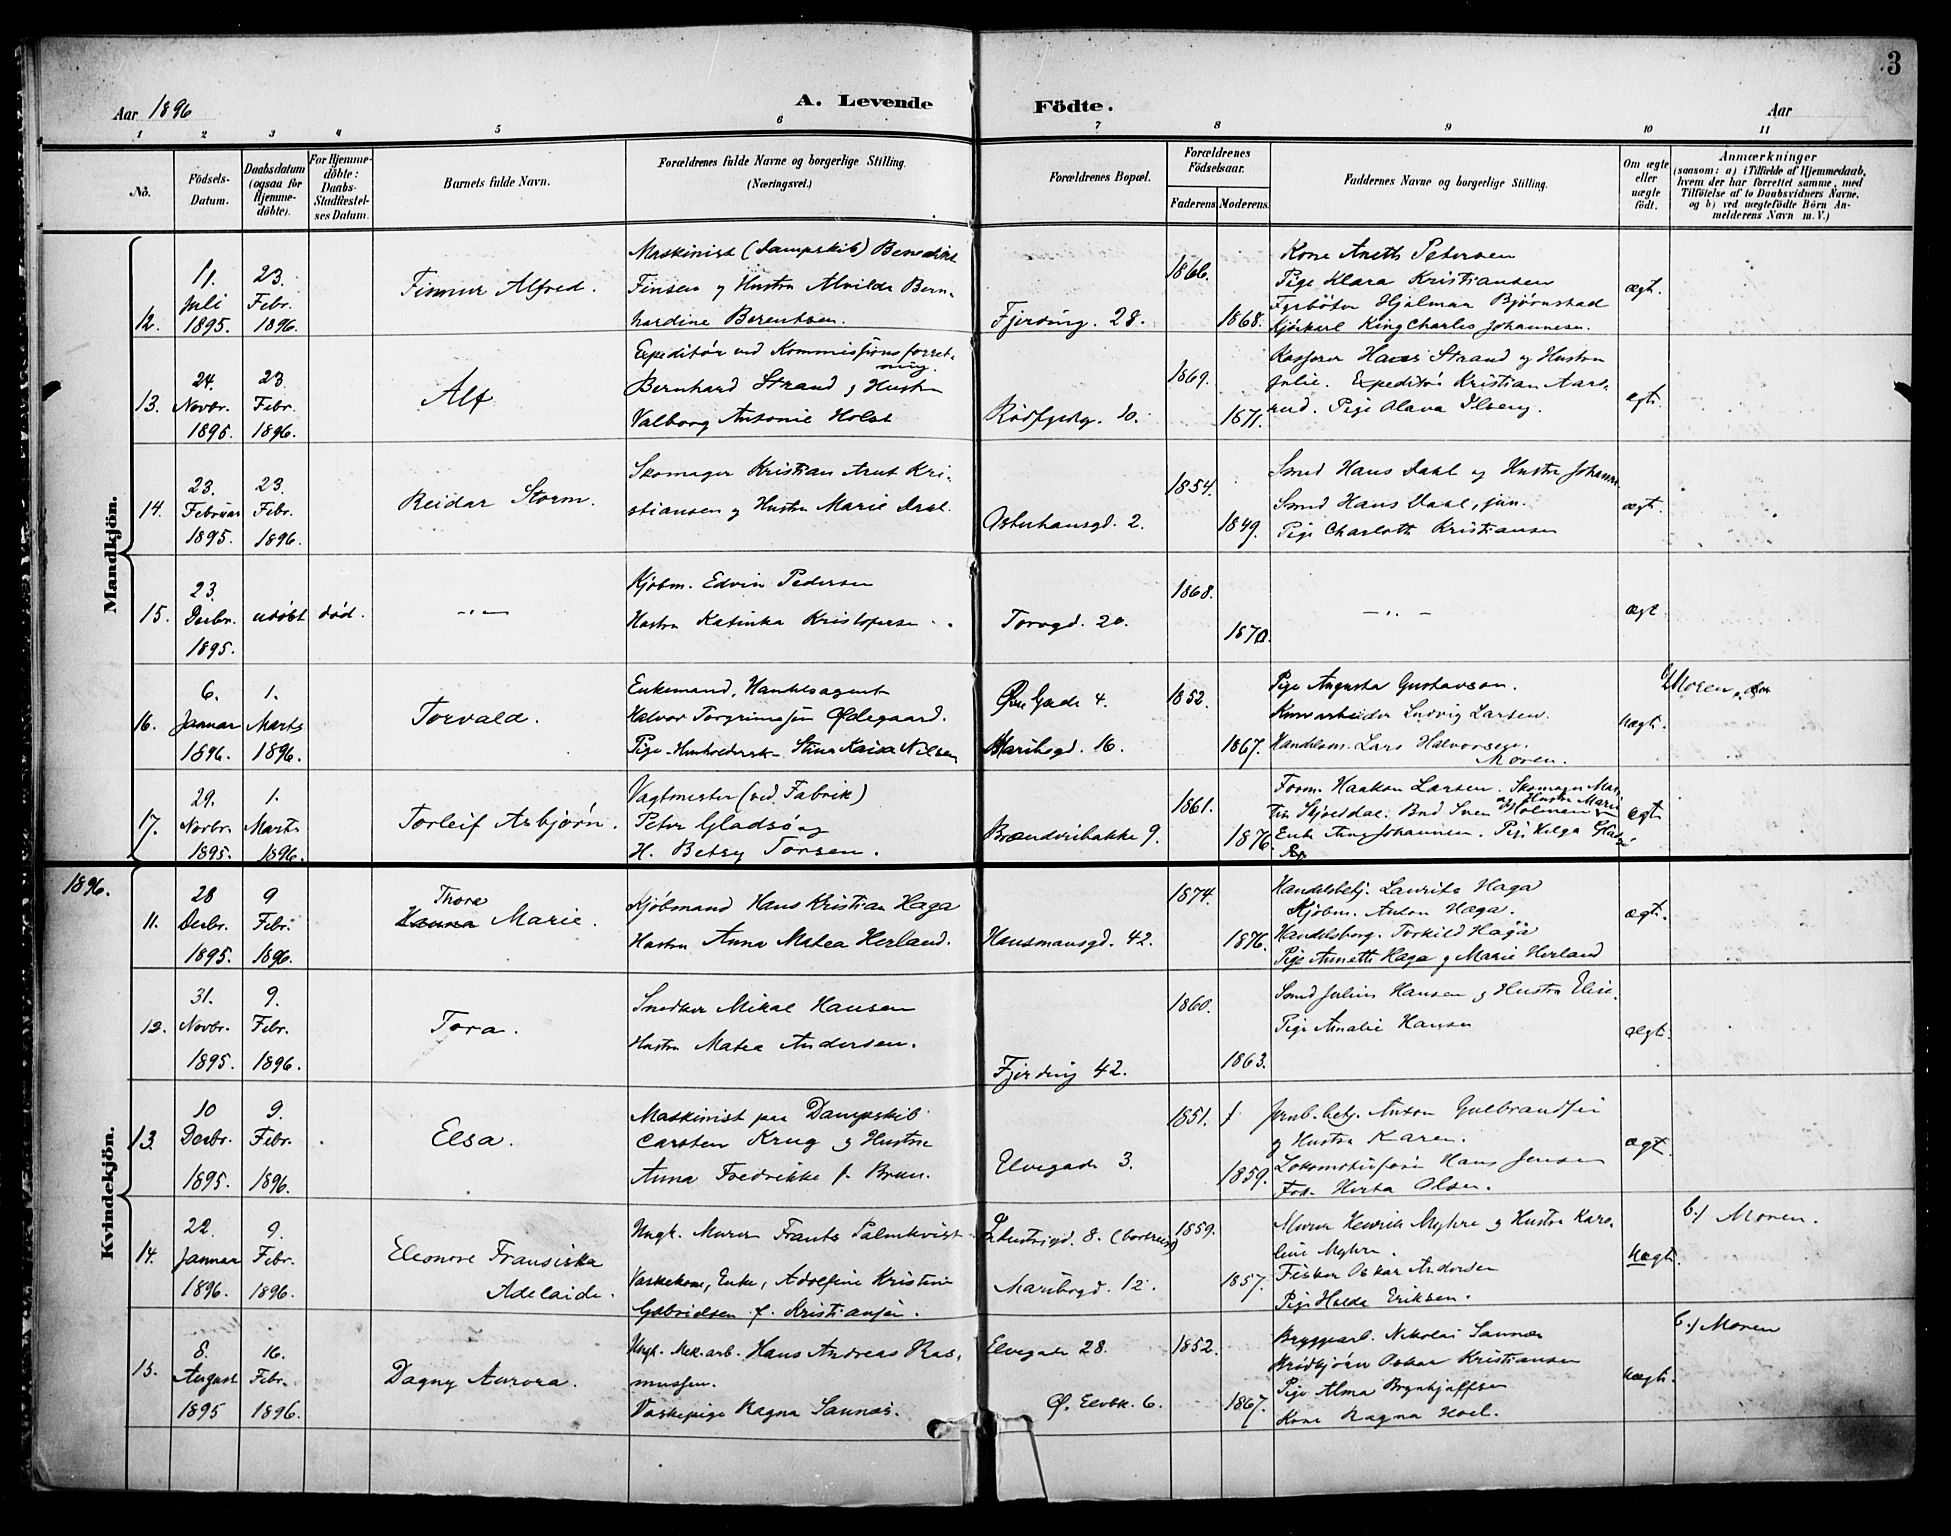 3
Aar 1896
A. Levende Födte.
Aar
1 2 3 4 5 6 7 8 9 10 11
No.
Födsels-Datum.
Daabsdatum (ogsaa for Hjemme-döbte).
For Hjemme-döbte: Daabs-Stadfæstel-ses Datum.
Barnets fulde Navn.
Forældrenes fulde Navne og borgerlige Stilling. (Næringsvei.)
Forældrenes Bopæl.
Forældrenes Födselsaar.
Faderens. Moderens.
Faddernes Navne og borgerlige Stilling.
Om ægte eller uægte födt.
Anmærkninger
(saasom: a) i Tilfælde af Hjemmedaab,
hvem der har forrettet samme, med
Tilföielse af to Daabsvidners Navne.
og b) ved uægtefödte Börn An-
melderens Navn m. V.)
Mandkjön.
12.
11. Juli 1895.
23. Febr. 1896.
Finnur Alfred.
Maskinist (Dampskib) Benedikt
Finsen og Hustru Alvilda Bern-
hardine Berentsen.
Fjerding. 28.
1866.
1868.
Kone Aneth Petersen
Pige Klara Kristiansen
Fyrböter Hjalmar Bjørnstad
Kjørkarl King Charles Johannesen.
ægt.
13.
24. Novbr. 1895.
23. Febr. 1896.
Alf
Expeditör ved Kommissionsforret-
ning.
Bernhard Strand og Hustru
Valborg Antonie Holst
Rödfyldg. 10.
1869.
1871.
Kasserer Hans Strand og Hustru
Julie. Expeditör Kristian Aars-
rud. Pige Olava Ilseng.
ægt.
14.
23. Februar 1895.
23. Febr. 1896.
Reidar Storm.
Skomager Kristian Arnt Kri-
stiansen og Hustru Marie Dahl.
Osterhausgd. 2.
1854.
1849.
Smed Hans Dahl og Hustru Johanne
Smed Hans Dahl, jun.
Pige Charlotte Kristiansen
ægt.
15.
23. Decbr. 1895.
udöbt död.
-"-
Kjöbm. Edvin Pedersen
Hustru Katinka Kristofersen
Torvgd. 20.
1868.
1870.
-"-
ægt
16.
6. Januar 1896.
1. Marts 1896.
Torvald.
Enkemand, Handelsagent
Halvor Torgrimsen Ødegaard.
Pige, Husholderske Stina Kaisa Nilsen
Øvre Gade 4.
Maribogd. 16.
1852.
1867.
Pige Augusta Gustavson.
Kurvarbeider Ludvig Larsen.
Handelsm. Lars Halvorsen.
Moren.
uægt.
b/ Moren,
17.
29. Novbr. 1895.
1. Marts 1896.
Torleif Asbjørn.
Vagtmester (ved Fabrik)
Peter Gladsö og
H. Betsy Torsen.
Brændvinbakke 9.
1861.
1876.
Form. Haakon Larsen. Skomager Mar-
tin Skjoldal og Hustru Marie
Enke Anna Johannesen. Pige Helga Gladsö
ægt.
1896.
Kvindekjön.
11.
28 Decbr. 1895.
9 Febr. 1896.
Thora
Hanna Marie.
Kjöbmand Hans Kristian Haga
Hustru Anna Matea Herland.
Hausmansgd. 42.
1874.
1876.
Handelsbetj. Laurits Haga
Kjöbm. Anton Haga.
Handelsborg. Torkild Haga
Pige Annette Haga og Marie Herland
ægt.
12.
31. Novbr. 1895.
9. Febr. 1896.
Tora.
Snedker Mikal Hansen
Hustru Matea Andersen.
Fjerding 42.
1860.
1863.
Smed Julius Hansen og Hustru Elise.
Pige Amalie Hansen
ægt.
13.
10 Decbr. 1895.
9. Febr. 1896.
Elsa.
Maskinist paa Dampskib
Carsten Krug og Hustru
Anna Fredrikke f. Brun.
Elvegade 3.
1851.
1859.
Jernb.betj. Anton Gulbrandsen
og Hustru Karen.
Lokomotivförer Hans Jensen
Frk. Herta Olsen.
ægt.
14.
22. Januar 1896.
9. Febr. 1896.
Eleonore Fransiska
Adelaide.
Ungk. Murer Frants Palmkvist
Vaskekone, Enke, Adolfine Kristine
Gabrielsen f. Kristiansen.
Industrigd. 8. (bortreist)
Maribogd. 12.
1859.
1857.
Murer Henrik Myhre og Hustru Karo-
line Myhre.
Fisker Oskar Andersen
Pige Hulda Eriksen.
uægt.
b.) Moren.
15.
8. August 1895
16. Febr. 1896.
Dagny Aurora.
Ungk. Mek.arb. Hans Andreas Ras-
mussen.
Vaskepige Ragna Saunæs.
Elvegade 28.
Ø. Elvbk. 6.
1852.
1867.
Bryggearb. Nikolai Saunæs
Brödkjörer Oskar Kristiansen
Pige Alma Brynhjulfsen
Kone Ragna Hoel.
uægt.
b.) Moren